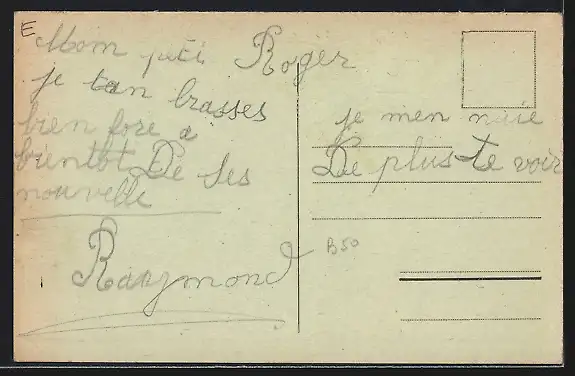 E
Mom peti Roger
je tan brasses
bien fore a
bientot De ses
nouvelle
Raaymond
je men naie
De plus te voir
B50